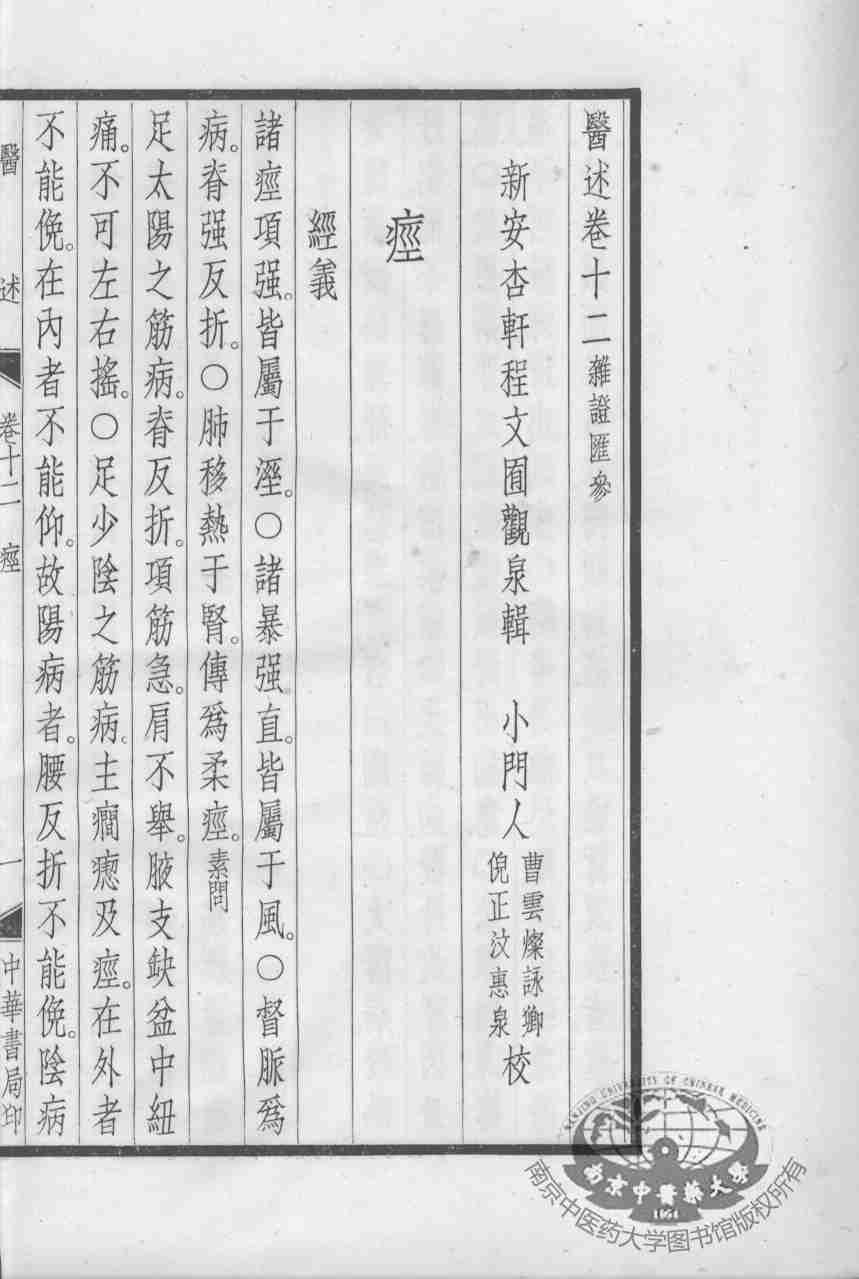 醫述卷十二 雜證匯參
新安杏軒程文囿觀泉輯 小門人 曹雲燦詠卿 倪正汶惠泉 校
痙
經義
諸痙項强。皆屬于溼。○諸暴强直。皆屬于風。○督脈爲
病。脊强反折。○肺移熱于腎。傳爲柔痙。素問
足太陽之筋病。脊反折。項筋急。肩不舉。腋支缺盆中紐
痛。不可左右搖。○足少陰之筋病。主癎瘛及痙。在外者
不能俛。在內者不能仰。故陽病者。腰反折不能俛。陰病
醫述 卷十二 痙 一 中華書局印
NANJING UNIVERSITY OF CHINESE MEDICINE
南京中醫藥大學
1954
南京中医药大学图书馆版权所有